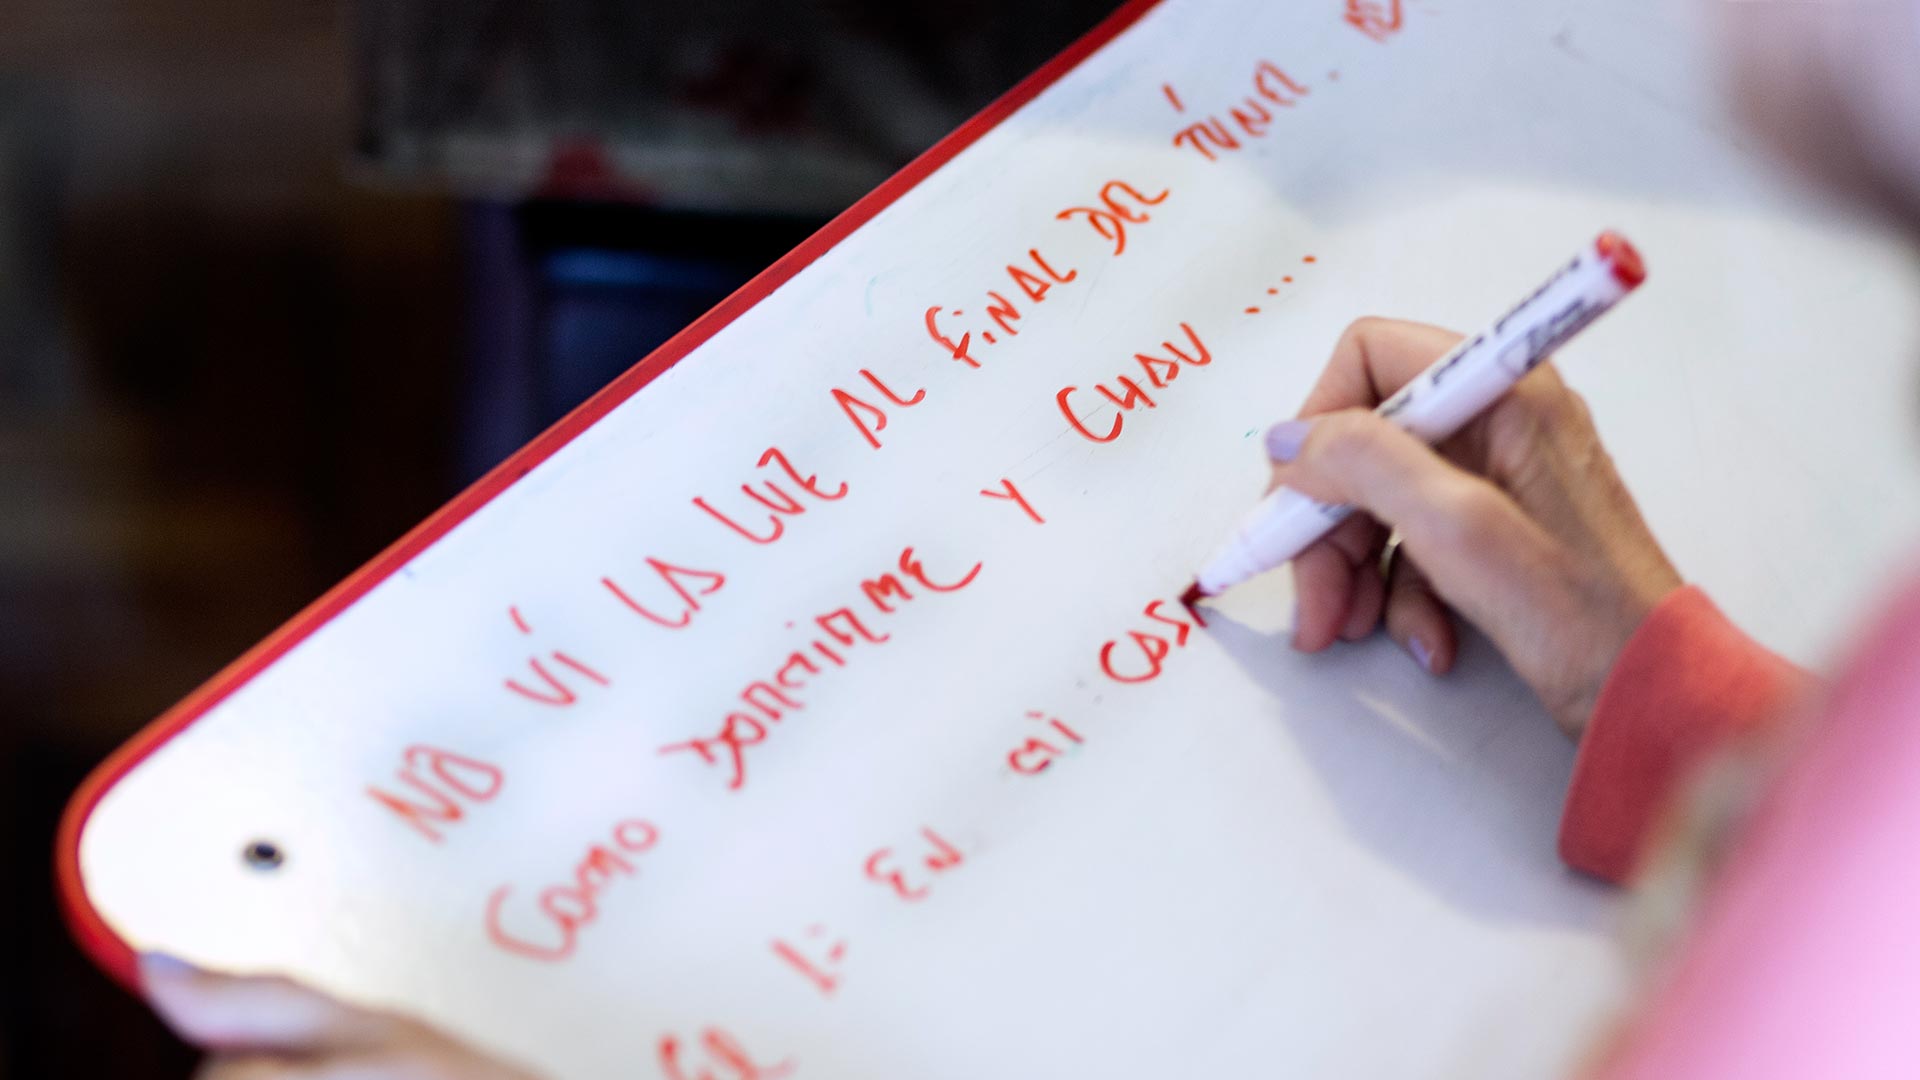 NO VÍ LA LUZ AL FINAL DEL TÚNEL.
COMO DORMIRME Y CHAU ....
1: EN Mi CAS